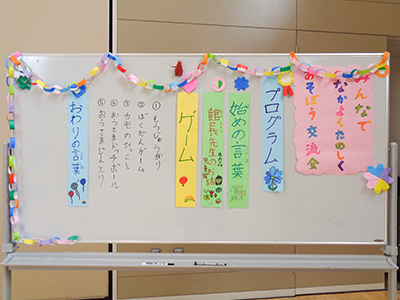 みんなで
なかよく たのしく
あそぼう 交流会
プログラム
始めの言葉
館長先生のお話
ゲーム
① もうじゅうがり
② ばくだんゲーム
③ カモのひっこし
④ おうさまドッチボール
⑤ おうさまじんとり
おわりの言葉